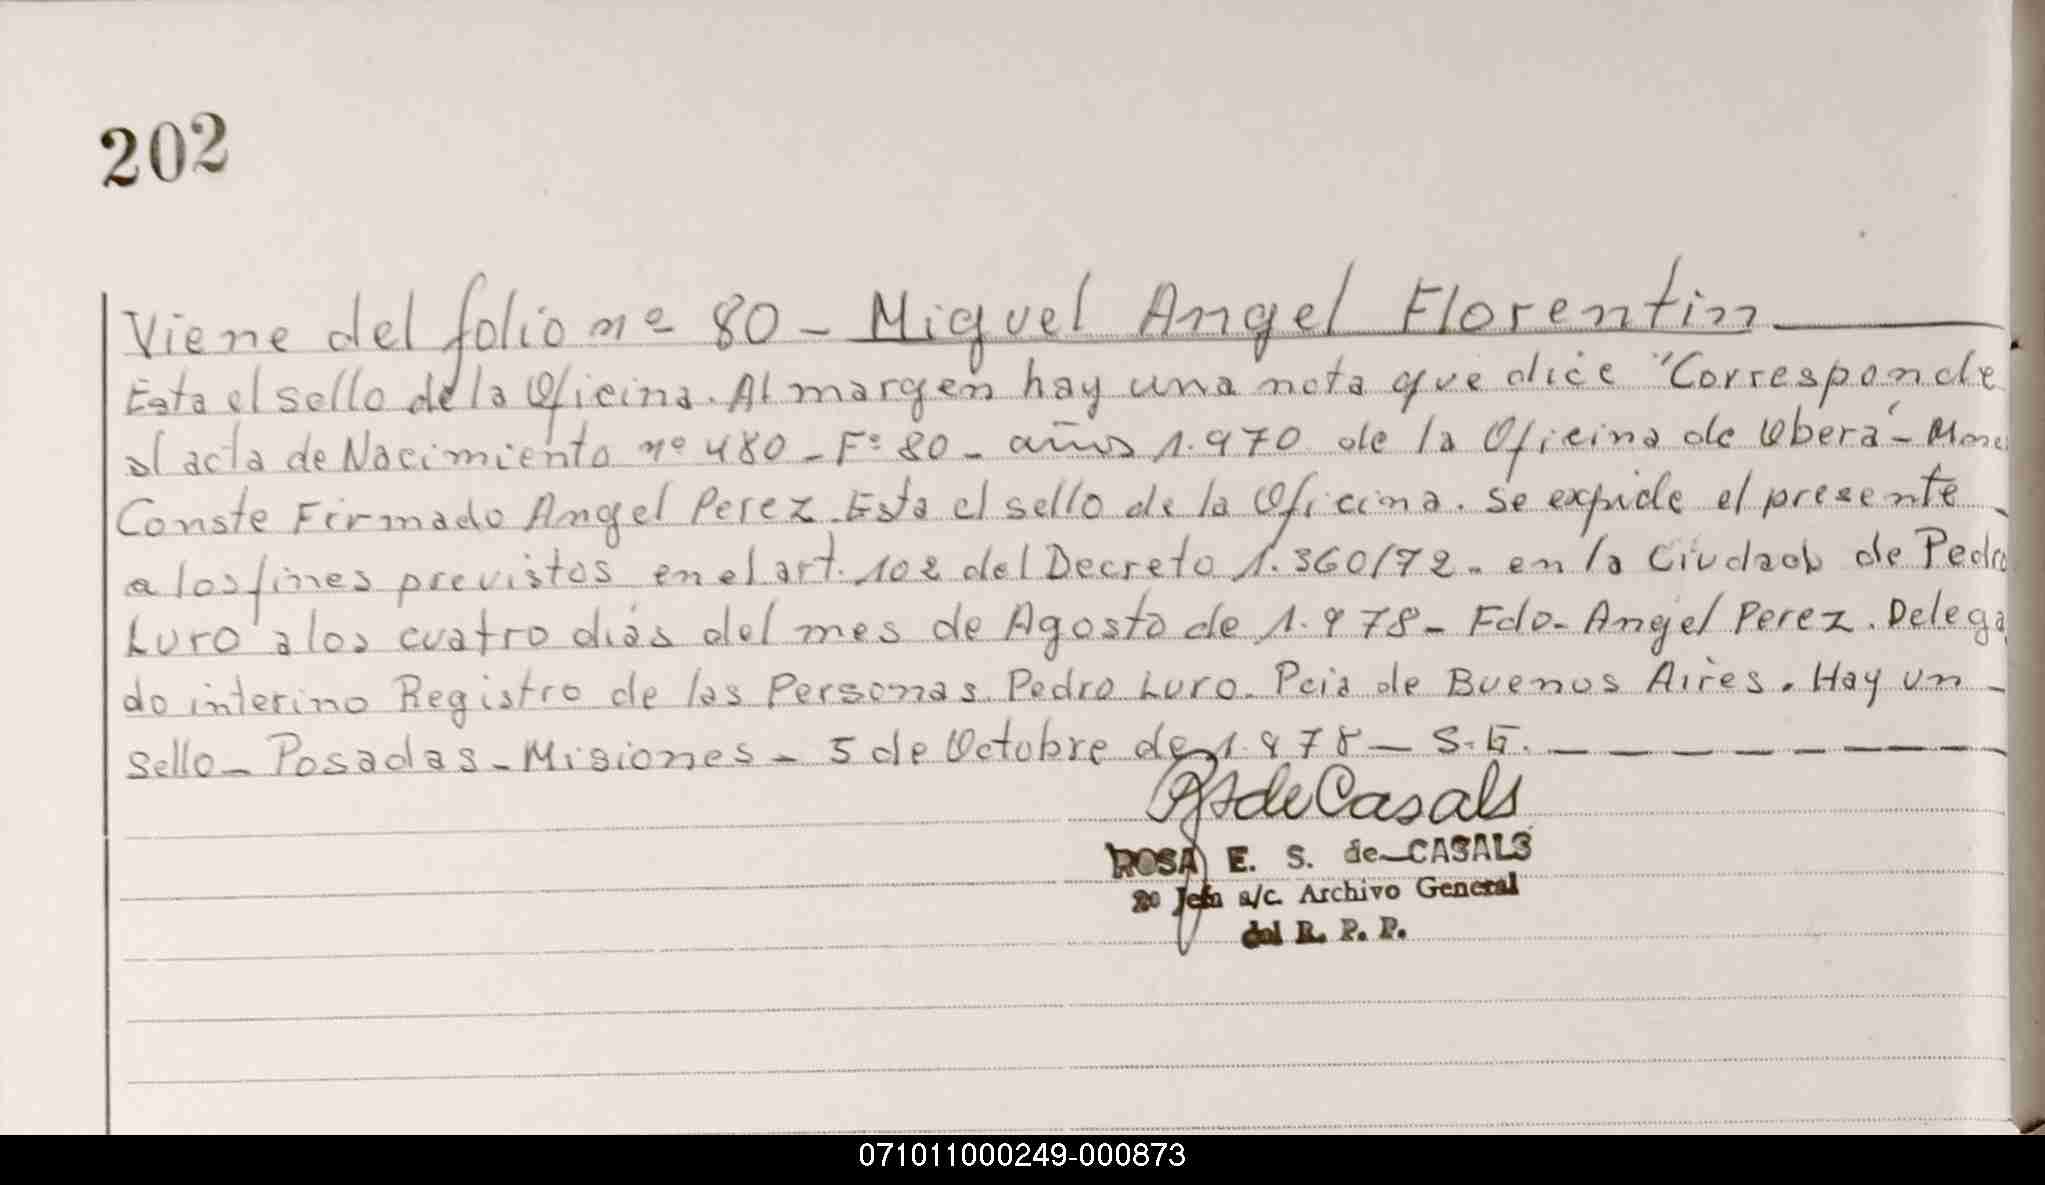 202
Viene del folio nº 80 - Miguel Angel Florentin
Esta el sello de la Oficina. Al margen hay una nota que dice "Corresponde
al acta de Nacimiento nº 480 - Fº 80 - años 1.970 de la Oficina de Oberá -
Conste Firmado Angel Perez. Esta el sello de la Oficina. Se expide el presente
a los fines previstos en el art. 102 del Decreto 1.360/72 - en la Ciudad de Pedro
Luro a los cuatro dias del mes de Agosto de 1.978 - Fdo - Angel Perez. Delega
do interino Registro de las Personas. Pedro Luro - Pcia de Buenos Aires. Hay un -
sello - Posadas - Misiones - 5 de Octubre de 1.978 - S.G. - - - - - - - -
de Casals
ROSA E. S. de CASALS
2º Jefa a/c. Archivo General
del R. P. P.
071011000249-000873